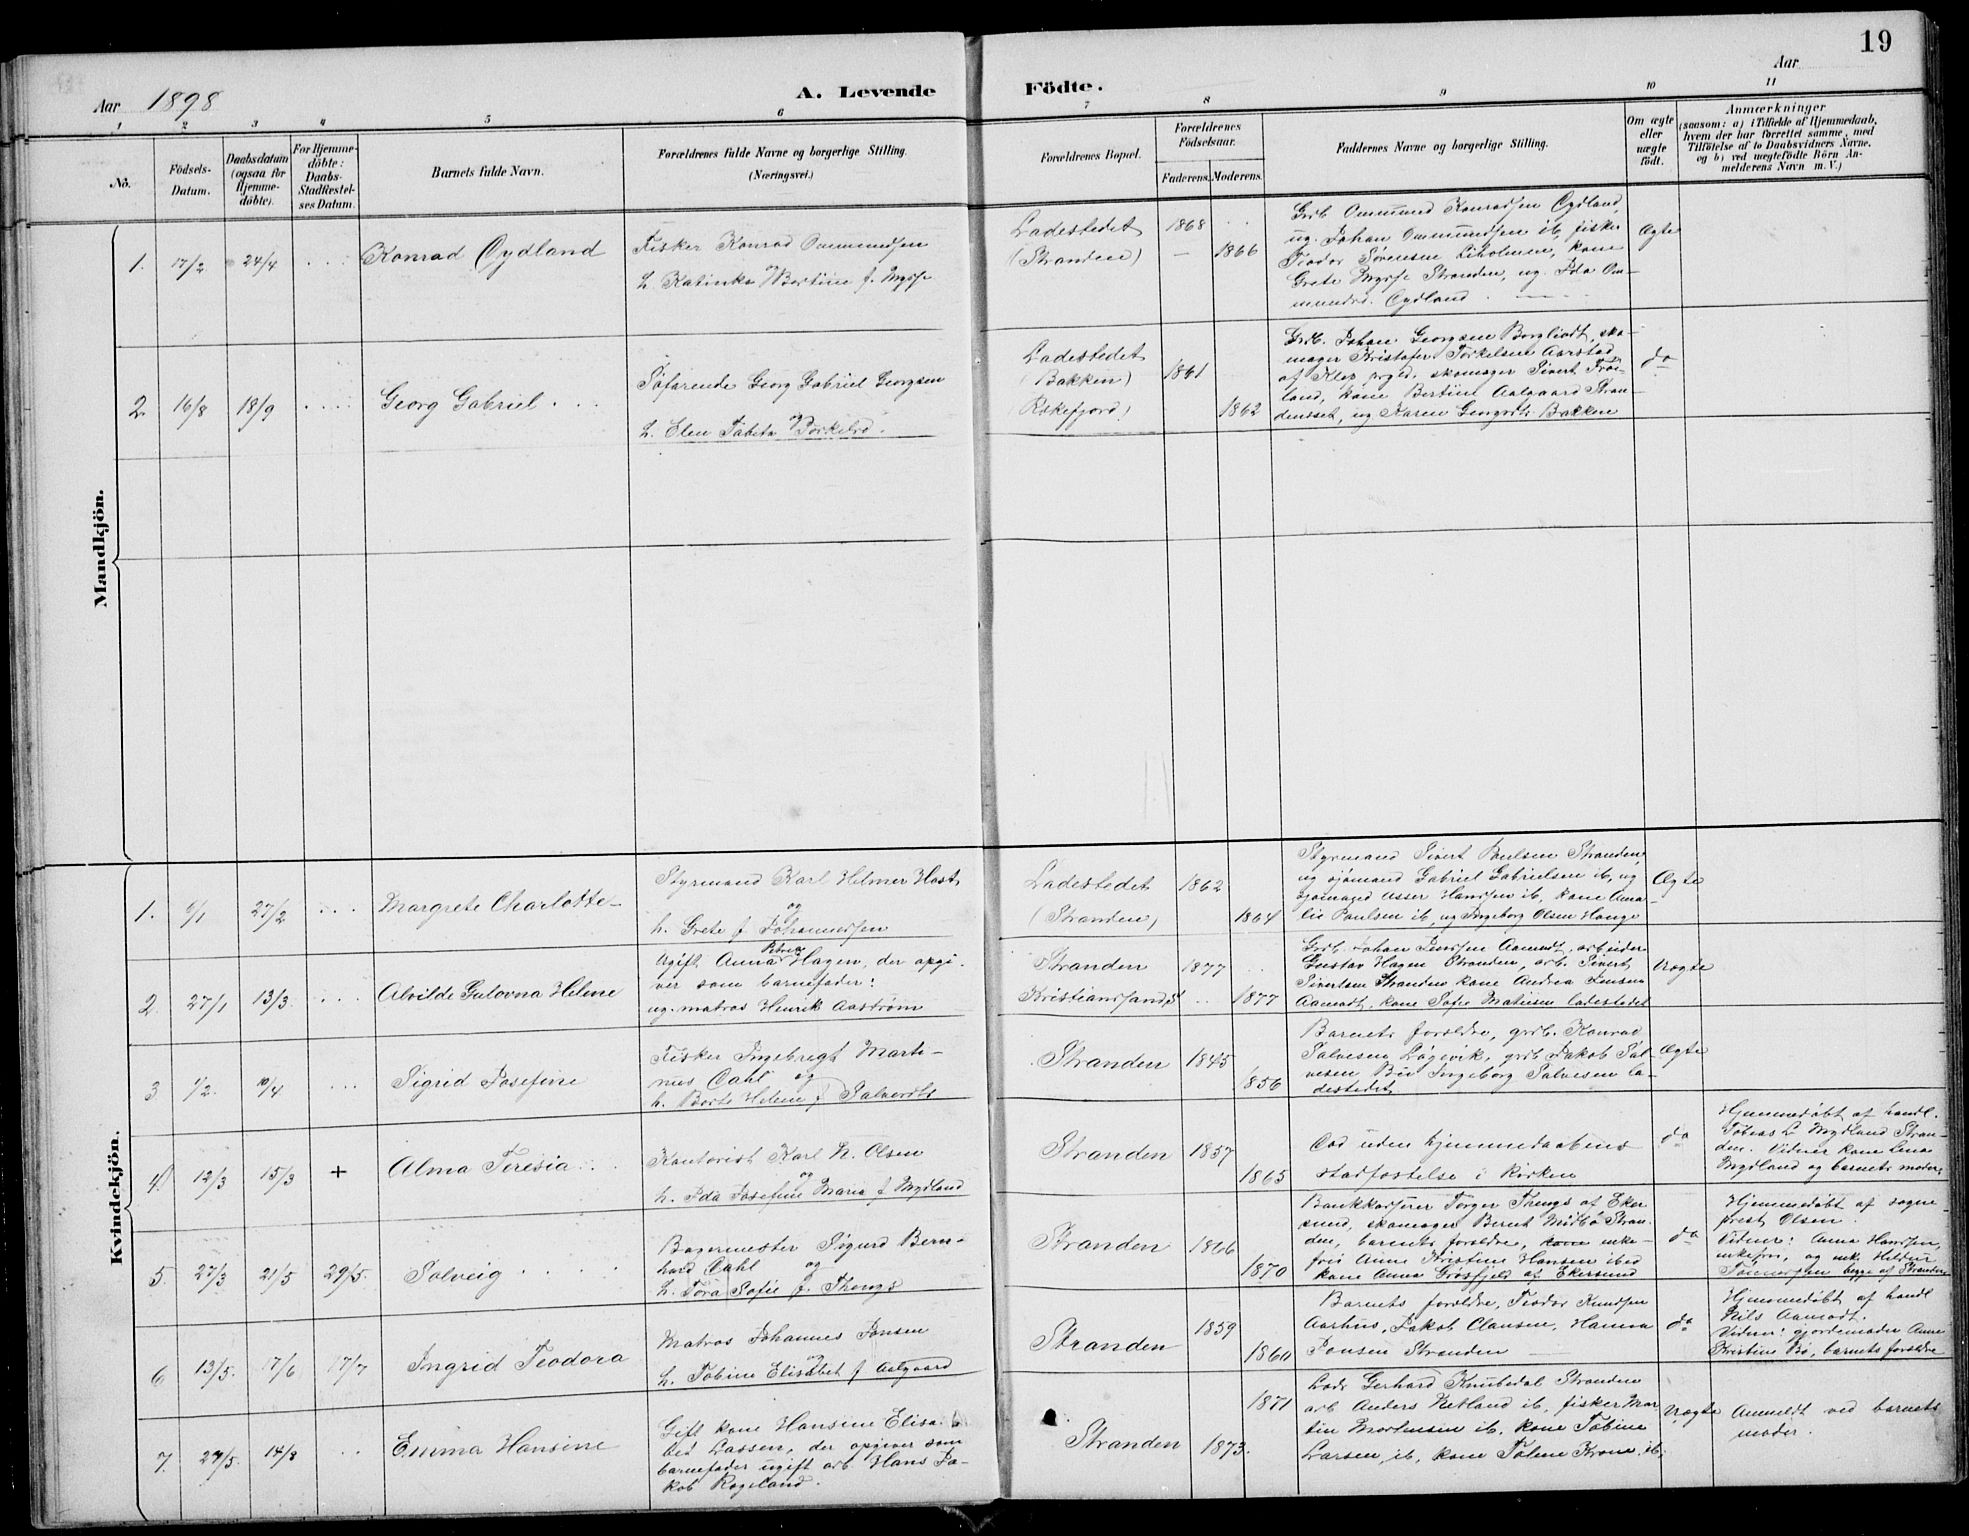 19
Aar 1898
A. Levende Födte.
Aar
1 2 3 4 5 6 7 8 9 10 11
No.
Födsels-
Datum.
Daabsdatum
(ogsaa for
Hjemme-
döbte).
For Hjemme-
döbte:
Daabs-
Stadfæstel-
ses Datum.
Barnets fulde Navn.
Forældrenes fulde Navne og borgerlige Stilling.
(Næringsvei.)
Forældrenes Bopæl.
Forældrenes
Födselsaar.
Faderens. Moderens.
Faddernes Navne og borgerlige Stilling.
Om ægte
eller
uægte
födt.
Anmærkninger
(saasom: a) i Tilfælde af Hjemmedaab,
hvem der har forrettet samme, med
Tilföielse af to Daabsvidners Navne,
og b) ved uægtefödte Börn An-
melderens Navn m. V.)
Mandkjön.
1. 17/2 24/4 Konrad Oydland
Fisker Konrad Ommundsen
og
h. Katinka Bertine f. Mysse
Ladestedet
(Stranden)
1868
1866
Grdb. Ommund Konradsen Oydland,
ug. Johan Ommundsen ib, fisker
Teodor Sørensen Liholmen, kone
Grete Mysse Stranden, ug. Ida Om-
mundsd. Oydland.
Ægte
2. 16/8 18/9 Georg Gabriel
Søfarende Georg Gabriel Georgsen
og
h. Elen Tabita Torkelsd.
Ladestedet
(Bakken)
(Rekefjord)
1861
1862
Grdb. Johan Georgsen Borgliodt, sko-
mager Kristofer Torkelsen Aarstad
af Klep prgd, skomager Sivert Frøi-
land, kone Bertine Aalgaard Stran-
densset, ug Karen Georgsdt. Bakken
do
Kvindekjön.
1. 6/1 27/2 Margrete Charlotte
Styrmand Karl Helmer Hast
og
h. Grete f Johannessen
Ladestedet
(Stranden)
1862
1864
Styrmand Sivert Paulsen Stranden,
ug sjømand Gabriel Gabrielsen ib, ug
sjømand Asser Hanssen ib, kone Ama-
lie Paulsen ib, ug Ingeborg Olsen Hauge
Ægte
2. 27/1 13/3. Alvilde Gulovna Helene
Ugift Anna Petrea Hagen, der opgi-
ver som barnefader:
ug. matros Henrik Aastrøm
Stranden
Kristianssand S
1877
1877
Grdb. Johan Jenssen Aamodt, arbeider
Gustav Hagen Stranden, arb. Sivert
Sivertsen Stranden kone Andrea Jensen
Aamodt, kone Sofie Matiesen ladestedet
Uægte
3 1/2. 10/4 Sigrid Josefine
Fisker Ingebregt Marti-
nius Dahl og
h. Berte Helene f Salvesdt.
Stranden
1845
1856
Barnets forældre, grdb. Konrad
Salvesen Løgevik, grdb Jakob Sal-
vesen Bu Ingeborg Salvesen la-
destedet
Ægte
4. 12/3 15/3 + Alma Teresia
Kontorist Karl N. Olsen
og
h. Ida Josefine Maria f Mydland
Stranden
1857
1865
Død uden hjemmedaabens
stadfæstelse i kirken
do
Hjemmedøbt af handl.
Tobias L Mydland Stran-
den. Vidner kone Lena
Mydland og barnets moder.
5. 27/3 21/5 29/5. Solveig
Bagermester Sigurd Bern-
hard Dahl og
h. Tora Sofie f. Thengs
Stranden
1866
1870
Bankkasserer Torger Thengs af Eker-
sund, skomager Bernt Midbø Stran-
den, barnets forældre, kone enke-
frø Anne Kristine Hansen ibid
kone Anna Grøsfjeld af Ekersund
do
Hjemmedøbt af sogne-
prest Olsen.
Vidner: Anna Hanssen,
enkefru, og enk. Heldine
Tønnessen begge af Stranden
6 13/5. 17/6 17/7 Ingrid Teodora
Matros Johannes Jonsen
og
h. Tobine Elisabet f Aalgaard
Stranden
1859
1860
Barnets forældre, Teodor Knudsen
Aarhus, Jakob Clausen, Hanna
Jonsen Stranden
do
Hjemmedøbt af handl
Nils Aamodt.
Vidner: gjordemoder Anne
Kristine Bø, barnets forældre
7. 24/5. 14/8 Emma Hansine
Gift kone Hansine Elisa-
bet Lassen, der opgiver som
barnefader ugift arb. Hans Ja-
kob Rægeland.
Stranden
1871
1873.
Lods Gerhard Knubedal Stranden
arb Anders Netland ib, fisker Mar-
tin Mortensen ib, kone Tobine
Larsen ib, kone Tolene Krone, ib,
Uægte
Anmeldt ved barnets
moder.